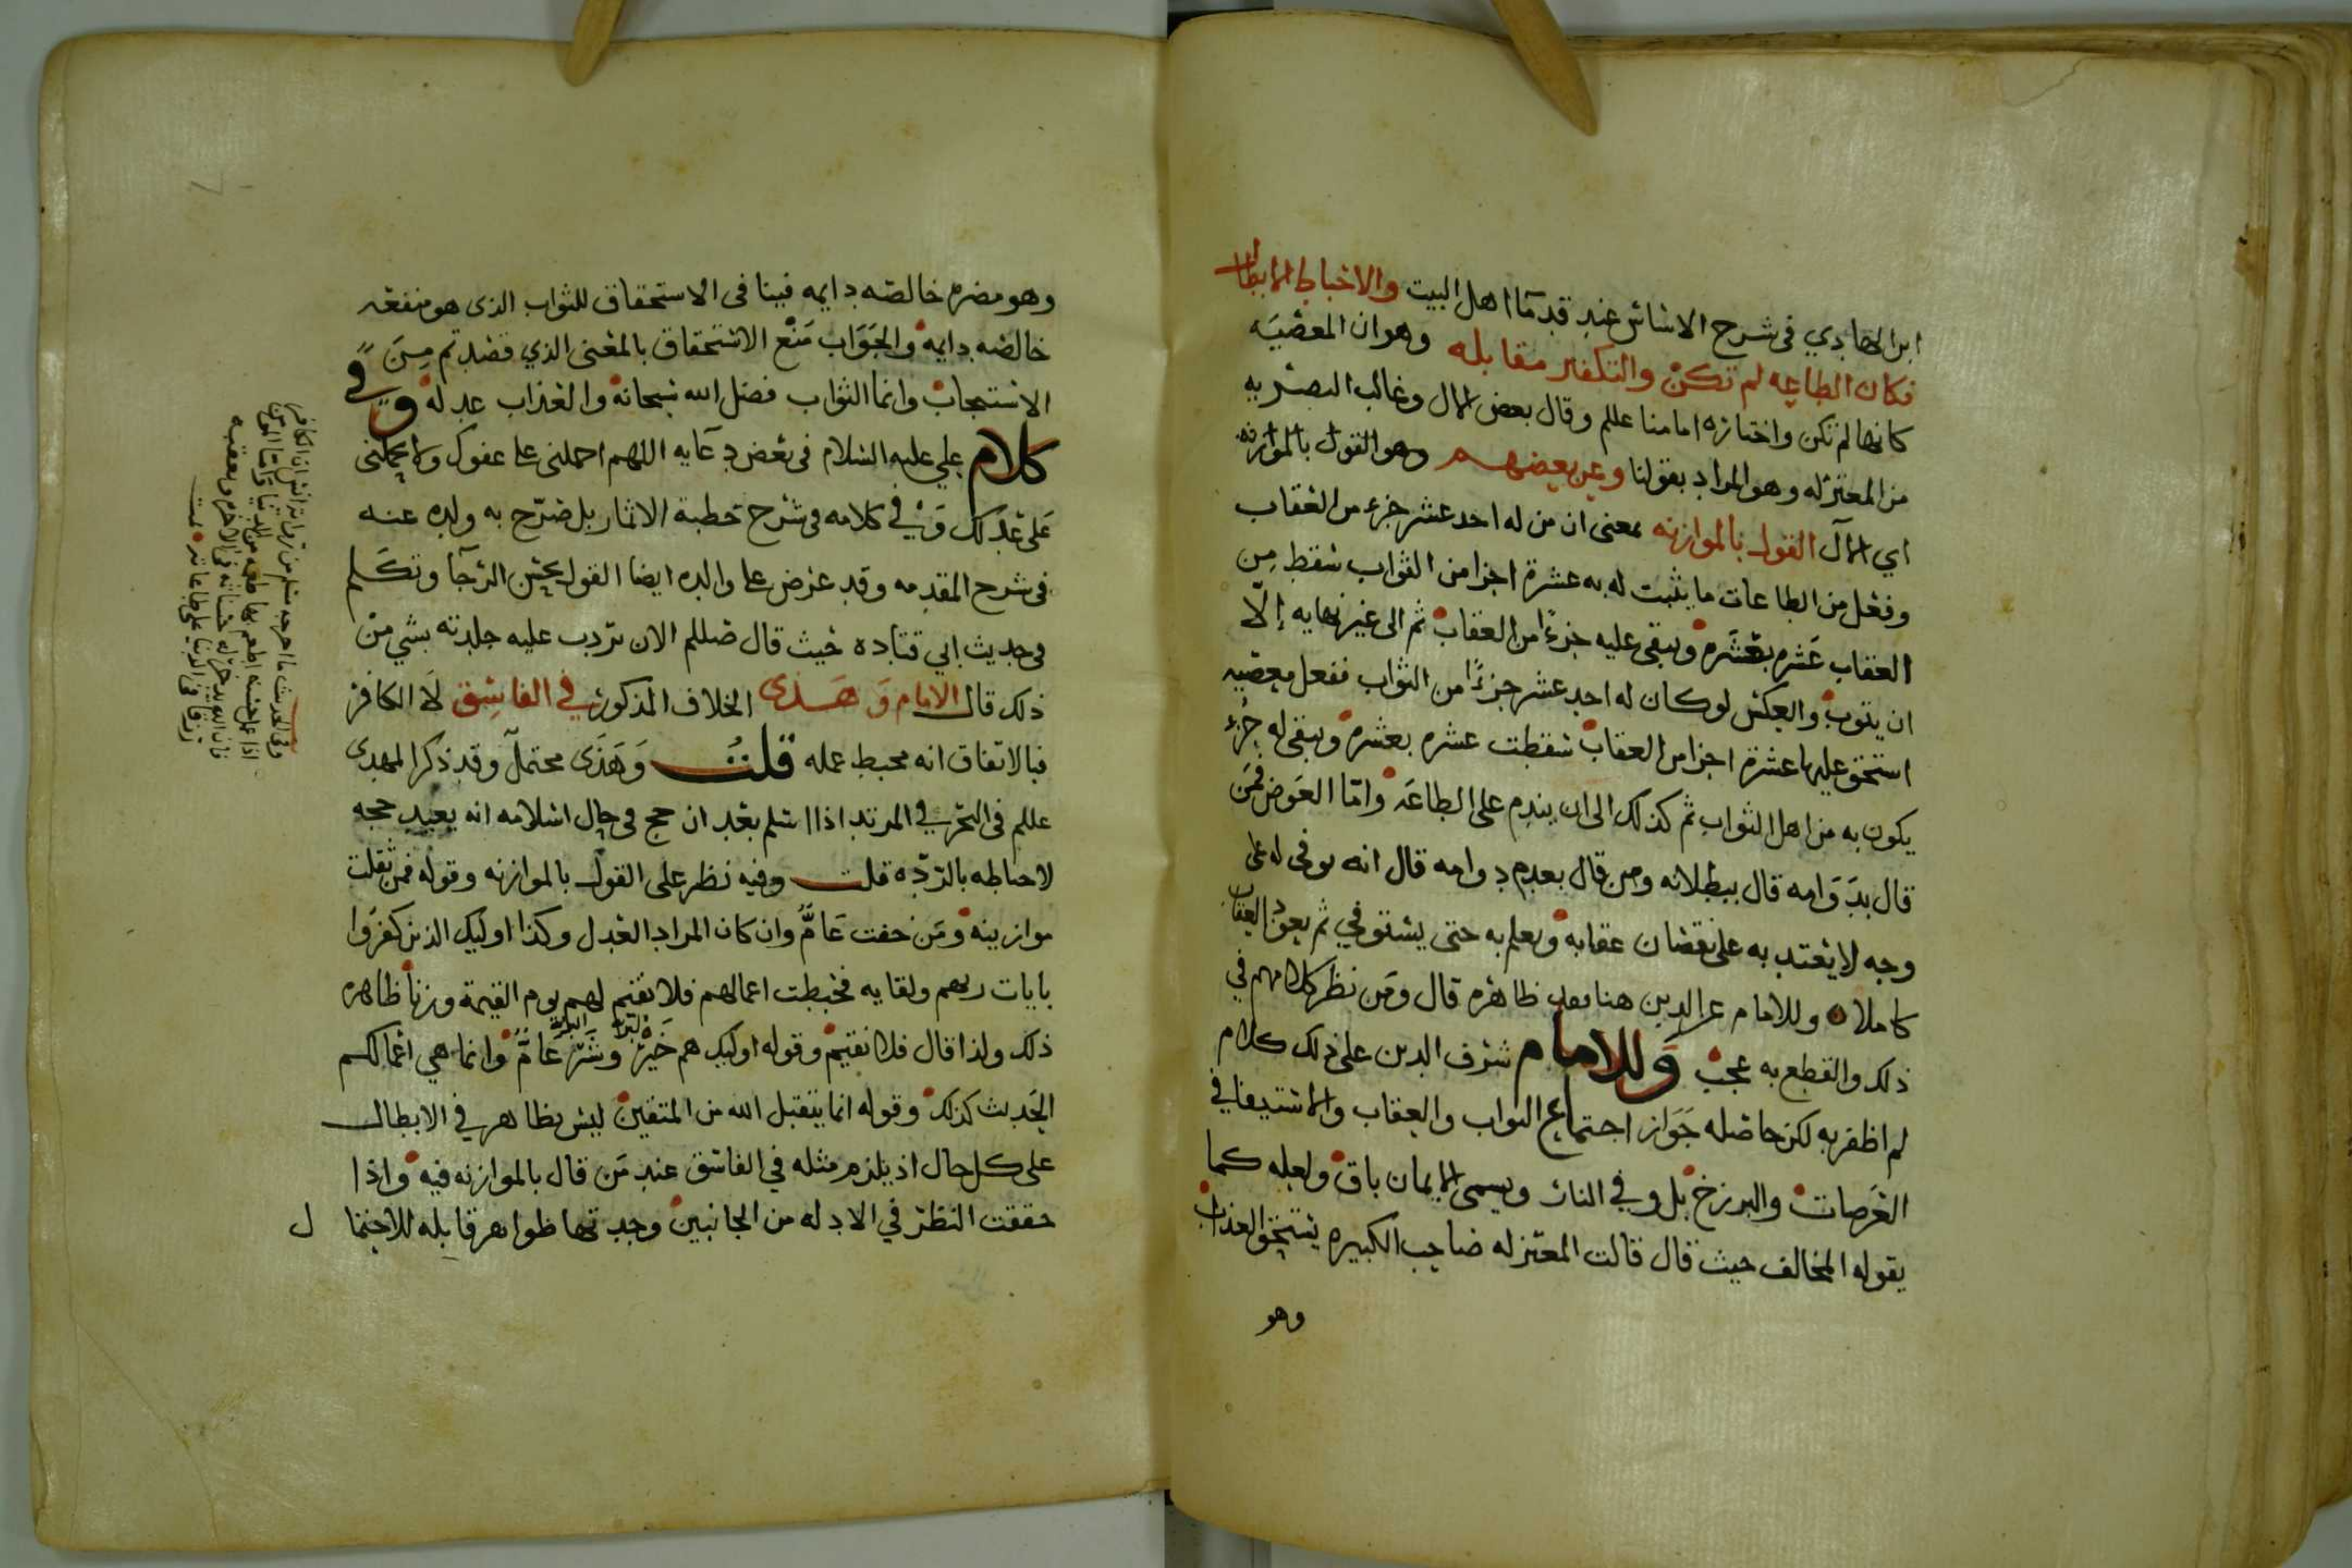 ابن الهادي في شرح الاساس عند قدمآ اهل البيت والاحباط الابطال
فكان الطاعه لم تكن والتكفير مقابله وهو ان المعصيه
كانها لم تكن واختاره امامنا عللم وقال بعض الال وغالب البصريه
من المعتزله وهو المراد بقولنا وعن بعضهم وهو القول بالموازنه
اي الآل القول بالموازنه بمعنى ان من له احد عشر جزء من العقاب
وفعل من الطاعات ما يثبت له به عشرة اجزا من الثواب سقط من
العقاب عشره بعشره ويبقى عليه جزءًا من العقاب ثم الى غير نهايه إلّا
ان يتوب والعكس لو كان له احد عشر جزءًا من الثواب ففعل معصيه
استحق عليها عشرة اجزا من العقاب سقطت عشره بعشره ويبقى له جزء
يكون به من اهل الثواب ثم كذلك الى ان يندم على الطاعه وامّا العوض فمن
قال بدوامه قال ببطلانه ومن قال بعدم دوامه قال انه يوفى له على
وجه لا يعتد به على نقصان عقابه ويعلم به حتى يستوفي ثم يعود العقاب
كاملا وللامام عز الدين هنا ظاهره قال ومن نظر كلامهم في
ذلك والقطع به عجب وللامام شرف الدين على ذلك كلام
لم اظفر به لكن حاصله جواز اجتماع الثواب والعقاب والاستيفا في
العرصات والبرزخ بل وفي النار ويسمى الايمان باق ولعله كما
يقوله المخالف حيث قال قالت المعتزله صاحب الكبيره يستحق العذاب
وهو
وهو مضره خالصه دايمه فينافى الاستحقاق للثواب الذى هو منفعه
خالصه دايمه والجواب منع الاستحقاق بالمعنى الذي قصدتم من
الاستيجاب وانما الثواب فضل الله سبحانه والعذاب عدله وفي
كلام علي عليه السلام في بعض دعآيه اللهم احملنى على عفوك ولا تحملنى
على عدلك وفي كلامه في شرح خطبة الاثمار بل صرّح به ولده عنه
في شرح المقدمه وقد عرض على والده ايضا القول بحسن الرجآ وتكلم
في حديث ابي قتاده حيث قال صللم الان بردت عليه جلدته بشي من
ذلك قال الامام وهذى الخلاف المذكور في الفاسق لا الكافر
فبالاتفاق انه محبط عمله قلت وهذى محتمل وقد ذكر المهدى
عللم في البحر في المرتد اذا اسلم بعد ان حج في حال اسلامه انه يعيد حجه
لاحباطه بالردّه قلت وفيه نظر على القول بالموازنه وقوله فمن ثقلت
موازينه ومن خفت عامٌّ وان كان المراد العدل وكذا اوليك الذين كفروا
بايات ربهم ولقايه فحبطت اعمالهم فلا نقيم لهم يوم القيمة وزنا ظاهره
ذلك ولذا قال فلا نقيم وقوله اوليك هم خير وشر عامٌّ وانما هي اعمالكم
الحديث كذلك وقوله انما يتقبل الله من المتقين ليس بظاهر في الابطال
على كل حال اذ يلزم مثله في الفاسق عند من قال بالموازنه فيه واذا
حققت النظر في الادله من الجانبين وجدتها ظواهر قابله للاحتمال
وفي الحديث ما اخرجه مسلم من رواية انس ان الكافر
اذا عمل حسنه اطعم بها طعمه من الدنيا واما المومن
فان الله يدخر له حسناته في الاخره ويعقبه
رزقا في الدنيا على طاعته تمت